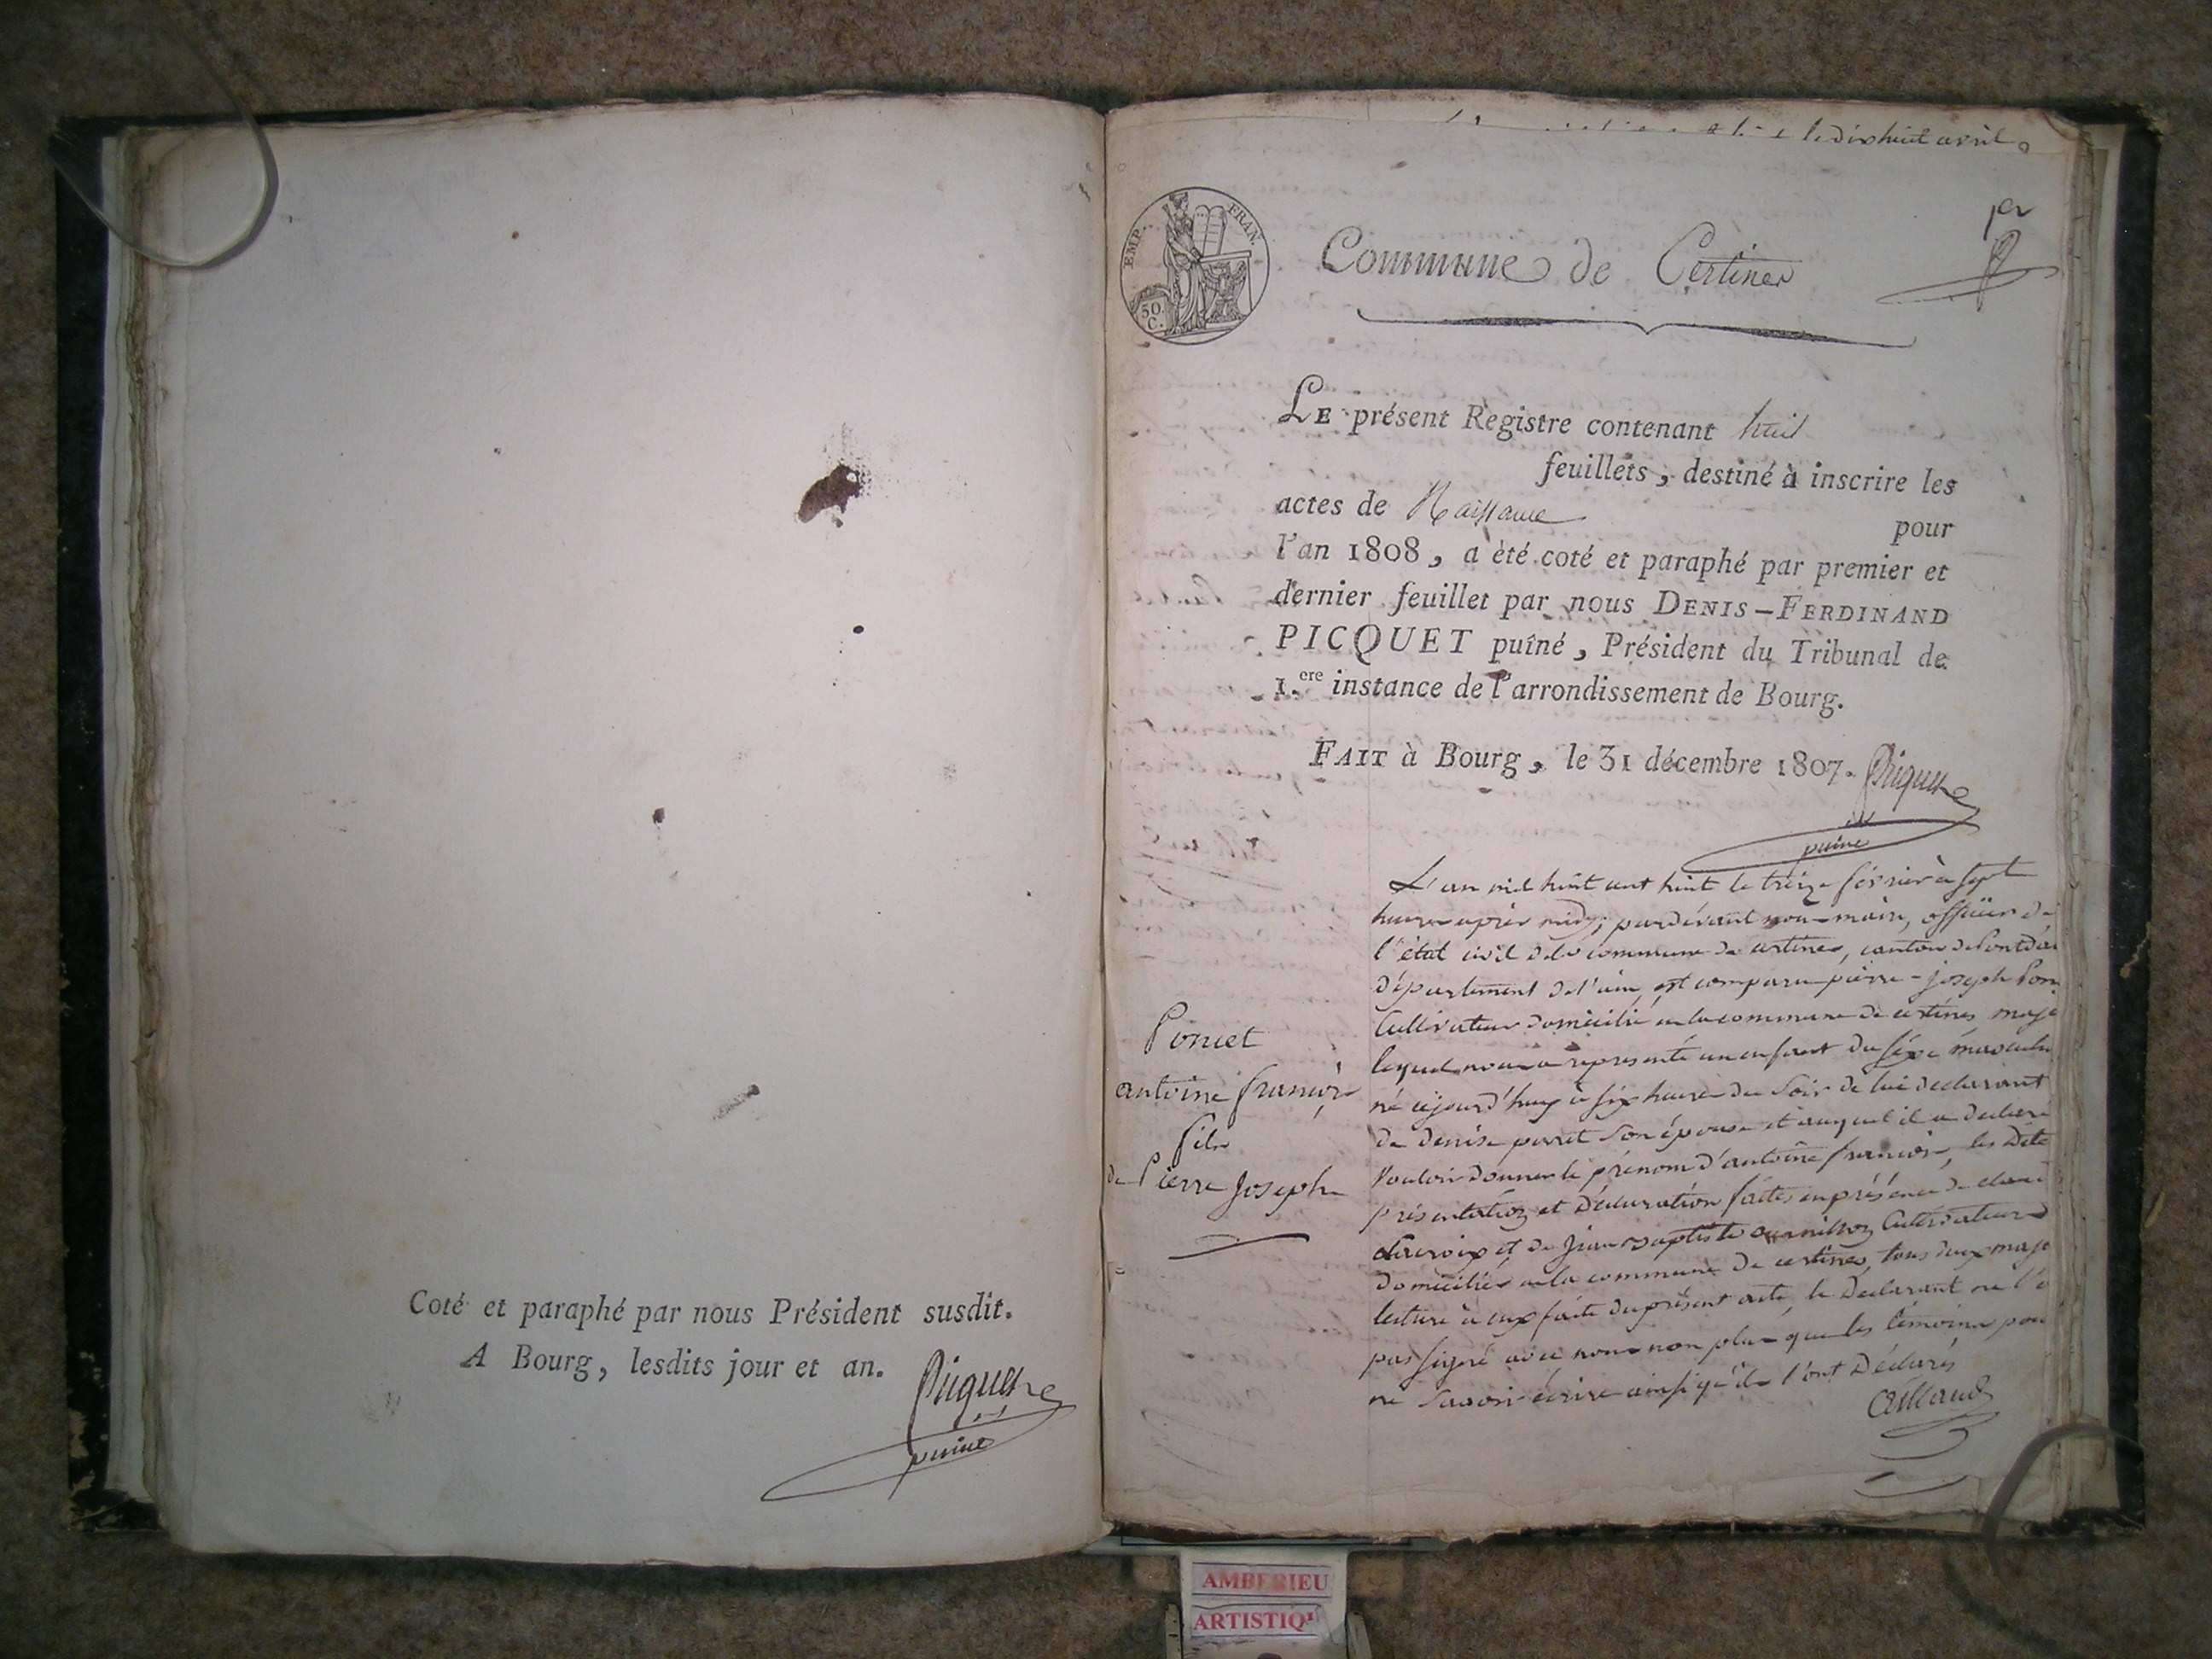 Coté et paraphé par nous Président susdit.
A Bourg, lesdits jour et an.
Picquet
puiné
le dix huit avril
EMP. FRAN.
50.
C.
1er
Commune de Certines
LE présent Registre contenant huit
feuillets, destiné à inscrire les
actes de Naissance pour
l'an 1808, a été coté et paraphé par premier et
dernier feuillet par nous DENIS-FERDINAND
PICQUET puîné, Président du Tribunal de
1.ere instance de l'arrondissement de Bourg.
FAIT à Bourg, le 31 décembre 1807.
Picquet
puiné
Poncet
antoine françois
fils
de Pierre Joseph
L'an mil huit cent huit le treize février à sept
heures après midy; pardevant nous maire, officier de
l'état civil de la commune de certines, canton de Pontdai
département de l'ain, est comparu pierre-joseph Pon
Cultivateur domicilié en la commune de certines maje
lequel nous a représenté un enfant du séxe masculin
né cejourd'huy à six heures du soir de lui déclarant
de denise perret son épouse et auquel il a déclaré
vouloir donner le prénom d'antoine françois, les dites
présentation et déclaration faites en présence de claude
Lacroix et de jean baptiste Cultivateurs
domiciliés en la commune de certines, tous deux maje
lecture à eux faite du présent acte, le déclarant ne l'a
pas signé avec nous non plus que les témoins pour
ne savoir écrire ainsi qu'ils l'ont déclarés
AMBERIEU
ARTISTIQ